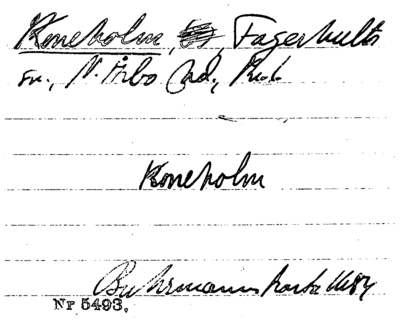 Koneholm, Fagerhults
sn., N. Åsbo hd., Krl.
Koneholm
Buhrmanns karta 1684
Nr 5493.